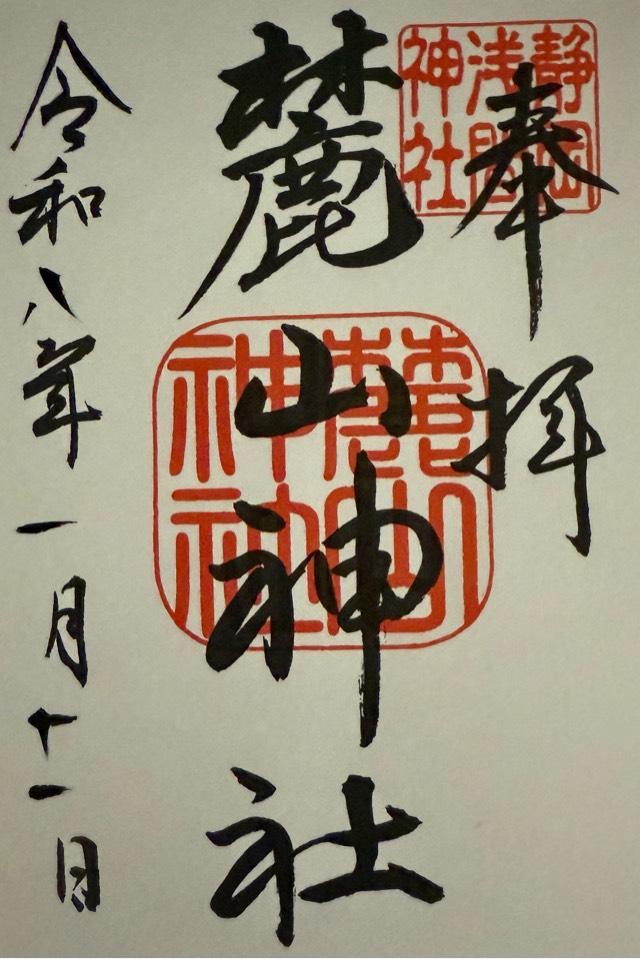 奉拝
静岡
浅間
神社
麓山神社
麓山
神社
令和八年一月十一日